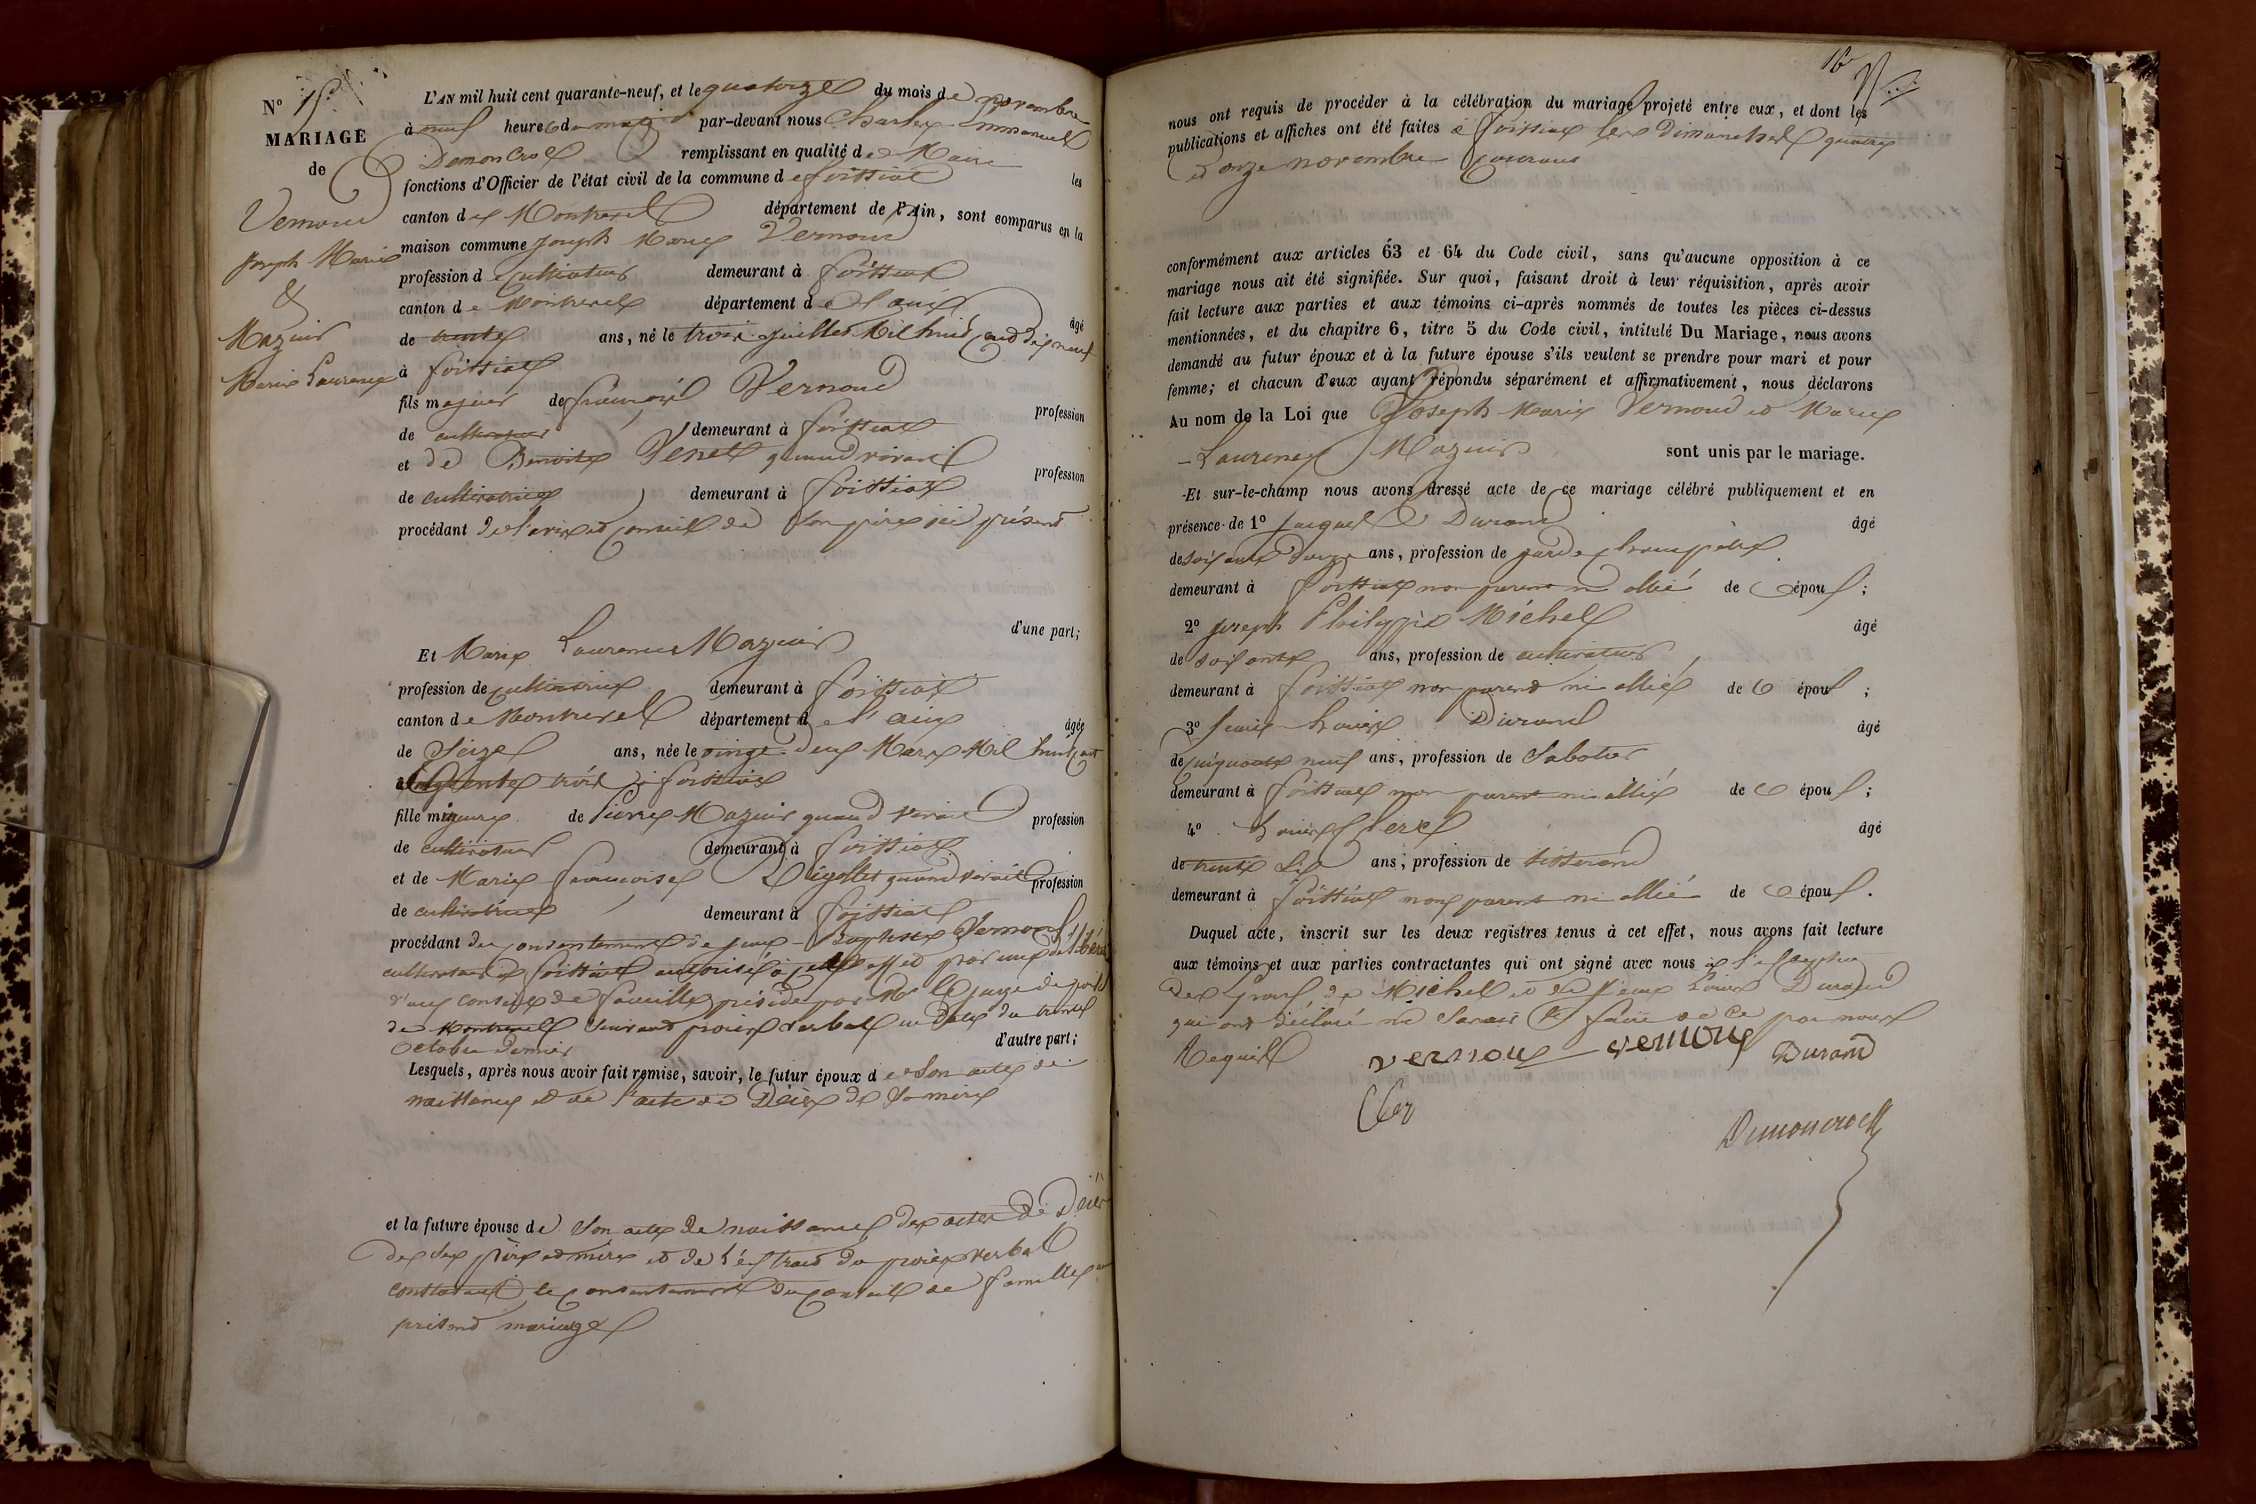 N° 15
MARIAGE
de
Vernoud
Joseph Marie
&
Mazuir
Marie Laurence
L'AN mil huit cent quarante-neuf, et le quatorze du mois de novembre
à neuf heures du matin par-devant nous Charles Emmanuel
Demoncroel remplissant en qualité de Maire les
fonctions d'Officier de l'état civil de la commune de foissiat
canton de Montrevel département de l'Ain, sont comparus en la
maison commune Joseph Marie Vernoud
profession de cultivateur demeurant à foissiat
canton de Montrevel département de l'ain âgé
de trente ans, né le trois juillet Mil huit cent dix neuf
à foissiat
fils majeur de françois Vernoud profession
de cultivateur demeurant à foissiat
et de Benoite Venet quand vivait profession
de cultivatrice demeurant à foissiat
procédant de l'avis et conseil de son père ici présent
d'une part;
Et Marie Laurence Mazuir
profession de cultivatrice demeurant à foissiat
canton de Montrevel département de l'ain âgée
de Seize ans, née le vingt deux Mars Mil huit cent
trente trois à foissiat
fille mineure de Pierre Mazuir quand vivait profession
de cultivateur demeurant à foissiat
et de Marie françoise quand vivait profession
de cultivatrice demeurant à foissiat
procédant du consentement de jean-Baptiste Vernoud
cultivateur à foissiat autorisé à cet effet par une délibération
d'un conseil de famille présidé par Mr le juge de paix
de Montrevel suivant procès verbal en date du trente
octobre dernier d'autre part;
Lesquels, après nous avoir fait remise, savoir, le futur époux de son acte de
naissance et de l'acte de Décès de sa mère
et la future épouse de son acte de naissance des actes de Décès
de ses père et mère et de l'extrait du procès verbal
constatant le consentement du conseil de famille au
présent mariage
16
nous ont requis de procéder à la célébration du mariage projeté entre eux, et dont les
publications et affiches ont été faites à foissiat les dimanches quatre
et onze novembre courant
conformément aux articles 63 et 64 du Code civil, sans qu'aucune opposition à ce
mariage nous ait été signifiée. Sur quoi, faisant droit à leur réquisition, après avoir
fait lecture aux parties et aux témoins ci-après nommés de toutes les pièces ci-dessus
mentionnées, et du chapitre 6, titre 5 du Code civil, intitulé Du Mariage, nous avons
demandé au futur époux et à la future épouse s'ils veulent se prendre pour mari et pour
femme; et chacun d'eux ayant répondu séparément et affirmativement, nous déclarons
Au nom de la Loi que Joseph Marie Vernoud et Marie
Laurence Mazuir sont unis par le mariage.
Et sur-le-champ nous avons dressé acte de ce mariage célébré publiquement et en
présence de 1° Jacques Durand âgé
de soixante douze ans, profession de garde champêtre
demeurant à foissiat non parent ni allié de C époux;
2° Joseph Philippe Michel âgé
de soixante ans, profession de cultivateur
demeurant à foissiat non parent ni allié de C époux;
3° Jean Louis Durand âgé
de cinquante neuf ans, profession de Sabotier
demeurant à foissiat non parent ni allié de C époux;
4° Louis Clerc âgé
de trente six ans, profession de tisserand
demeurant à foissiat non parent ni allié de C époux.
Duquel acte, inscrit sur les deux registres tenus à cet effet, nous avons fait lecture
aux témoins et aux parties contractantes qui ont signé avec nous à l'exception
de Michel et de Jean Louis Durand
qui ont déclaré ne savoir le faire de ce par nous
Requis vernoux vernoux Durand
Clerc
Demoncroel